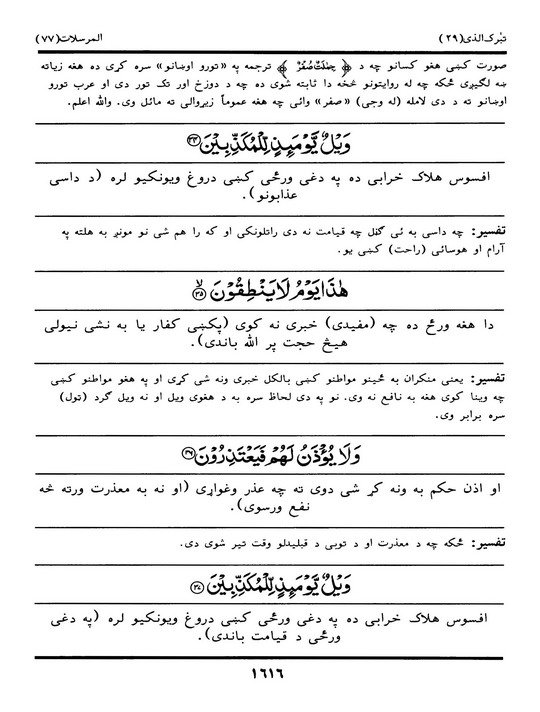 تبٰرک الذی (٢٩)
المرسلات (٧٧)
صورت کښی هغو کسانو چه د ﴿ جِمٰلَتٌ صُفْرٌ ﴾ ترجمه په «تورو اوښانو» سره کړی ده هغه زیاته
ښه لگیږی ځکه چه له روایتونو څخه دا ثابته شوی ده چه د دوزخ اور تک تور دی او عرب تورو
اوښانو ته د دی لامله (له وجی) «صفر» وائی چه هغه عموماً زیړوالی ته مائل وی. والله اعلم.
وَيْلٌ يَّوْمَئِذٍ لِّلْمُكَذِّبِيْنَ
افسوس هلاک خرابی ده په دغی ورځی کښی دروغ ویونکیو لره (د داسی
عذابونو).
تفسیر: چه داسی به ئی گڼل چه قیامت نه دی راتلونکی او که را هم شی نو مونږ به هلته په
آرام او هوسائی (راحت) کښی یو.
هٰذَا يَوْمُ لَا يَنْطِقُوْنَ ﴿٣٥﴾
دا هغه ورځ ده چه (مفیدی) خبری نه کوی (پکښی کفار یا به نشی نیولی
هیڅ حجت پر الله باندی).
تفسیر: یعنی منکران به ځینو مواطنو کښی بالکل خبری ونه شی کړی او په هغو مواطنو کښی
چه وینا کوی هغه به نافع نه وی. نو په دی لحاظ سره به د هغوی ویل او نه ویل گرد (ټول)
سره برابر وی.
وَلَا يُؤْذَنُ لَهُمْ فَيَعْتَذِرُوْنَ
او اذن حکم به ونه کړ شی دوی ته چه عذر وغواړی (او نه به معذرت ورته څه
نفع ورسوی).
تفسیر: ځکه چه د معذرت او د توبی د قبلیدلو وقت تیر شوی دی.
وَيْلٌ يَّوْمَئِذٍ لِّلْمُكَذِّبِيْنَ
افسوس هلاک خرابی ده په دغی ورځی کښی دروغ ویونکیو لره (په دغی
ورځی د قیامت باندی).
١٦١٦